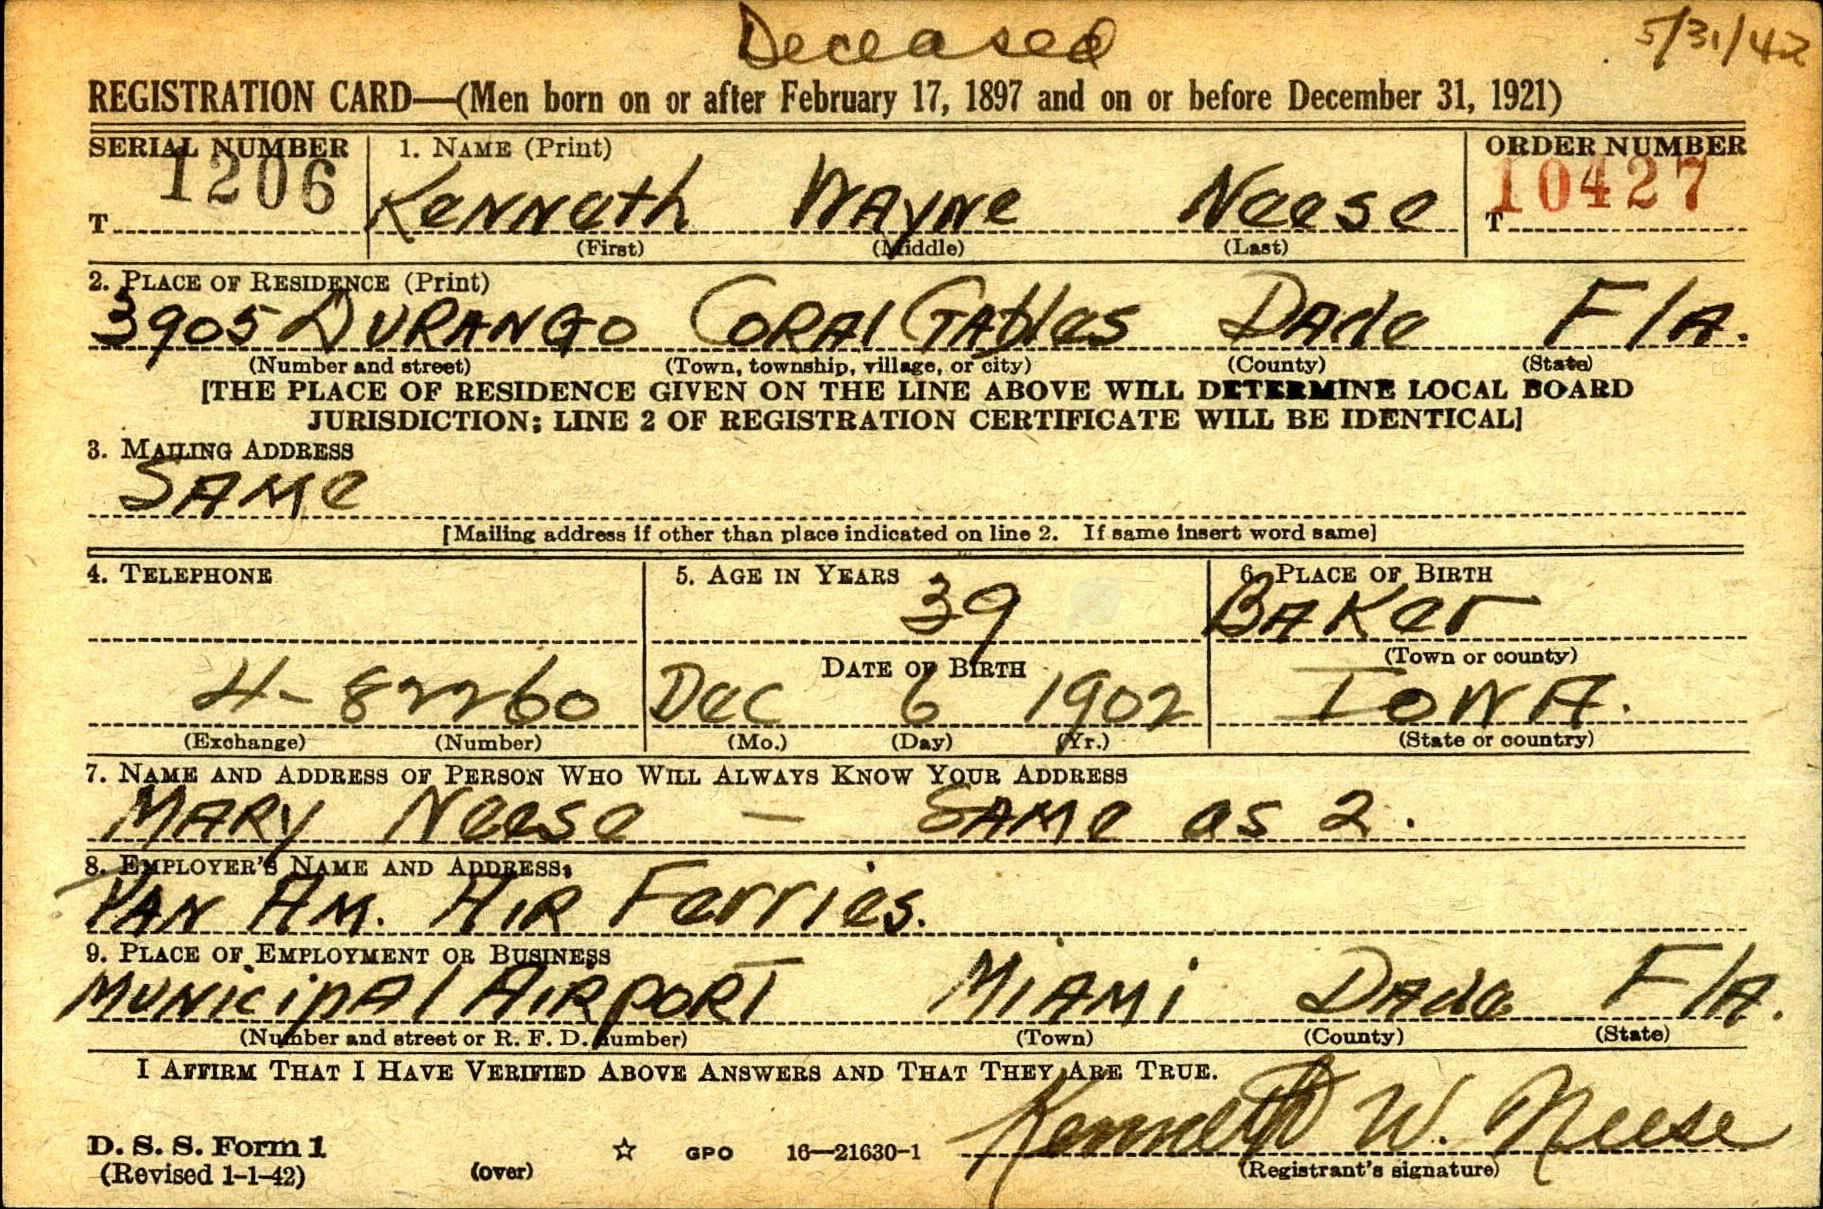 Deceased 5/31/42
REGISTRATION CARD—(Men born on or after February 17, 1897 and on or before December 31, 1921)
SERIAL NUMBER 1. NAME (Print) ORDER NUMBER
1206 Kenneth Wayne Neese 10427
T (First) (Middle) (Last) T
2. PLACE OF RESIDENCE (Print)
3905 DURANGO CORAl GAbles DAde FlA.
(Number and street) (Town, township, village, or city) (County) (State)
[THE PLACE OF RESIDENCE GIVEN ON THE LINE ABOVE WILL DETERMINE LOCAL BOARD
JURISDICTION; LINE 2 OF REGISTRATION CERTIFICATE WILL BE IDENTICAL]
3. MAILING ADDRESS
SAMe
[Mailing address if other than place indicated on line 2. If same insert word same]
4. TELEPHONE 5. AGE IN YEARS 6. PLACE OF BIRTH
39 BAKer
DATE OF BIRTH (Town or county)
4-82260 Dec 6 1902 IOWA.
(Exchange) (Number) (Mo.) (Day) (Yr.) (State or country)
7. NAME AND ADDRESS OF PERSON WHO WILL ALWAYS KNOW YOUR ADDRESS
MARY Neese — SAMe as 2.
8. EMPLOYER'S NAME AND ADDRESS
PAN AM. AIR Ferries.
9. PLACE OF EMPLOYMENT OR BUSINESS
MUNICipAl AIRpORT MIAMi DAde FlA.
(Number and street or R. F. D. number) (Town) (County) (State)
I AFFIRM THAT I HAVE VERIFIED ABOVE ANSWERS AND THAT THEY ARE TRUE.
Kenneth W. Neese
D. S. S. Form 1 ☆ GPO 16—21630-1
(Revised 1-1-42) (over) (Registrant's signature)